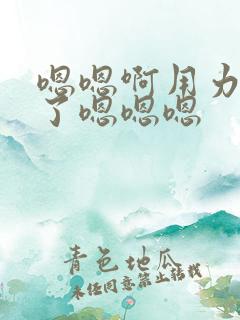 嗯嗯啊用力
了嗯嗯嗯
青色地瓜
未经同意禁止转载